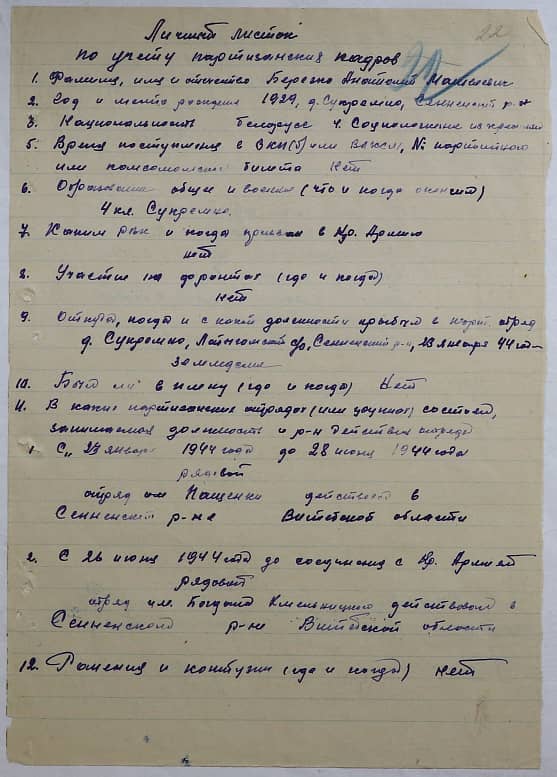 22
Личный листок
по учету партизанских кадров
1. Фамилия, имя и отчество Березко Анатолий
2. Год и место рождения 1929, д. Супремно, Сенненский р-н
3. Национальность белорус 4. Соцположение из крестьян
5. Время поступления в ВКП(б) или ВЛКСМ, № партийного
или комсомольского билета Нет
6. Образование общее и военное (что и когда окончил)
4 кл. Супремно.
7. Каким РВК и когда призван в Кр. Армию
нет
8. Участие на фронтах (где и когда)
нет
9. Откуда, когда и с какой должности прибыл в парт. отряд
д. Супремно, с/с, Сенненский р-н, 23 января 44 года
земледелие
10. Был ли в плену (где и когда) Нет
11. В каких партизанских отрядах (или группах) состоял,
занимаемая должность и р-н действия отряда
1. С 23 января 1944 года до 28 июня 1944 года
рядовой
отряд им. Пащенки действовал в
Сенненском р-не Витебской области
2. С 26 июня 1944 года до соединения с Кр. Армией
рядовой
отряд им. Богдана Хмельницкого действовал в
Сенненском р-не Витебской области
12. Ранения и контузии (где и когда) нет